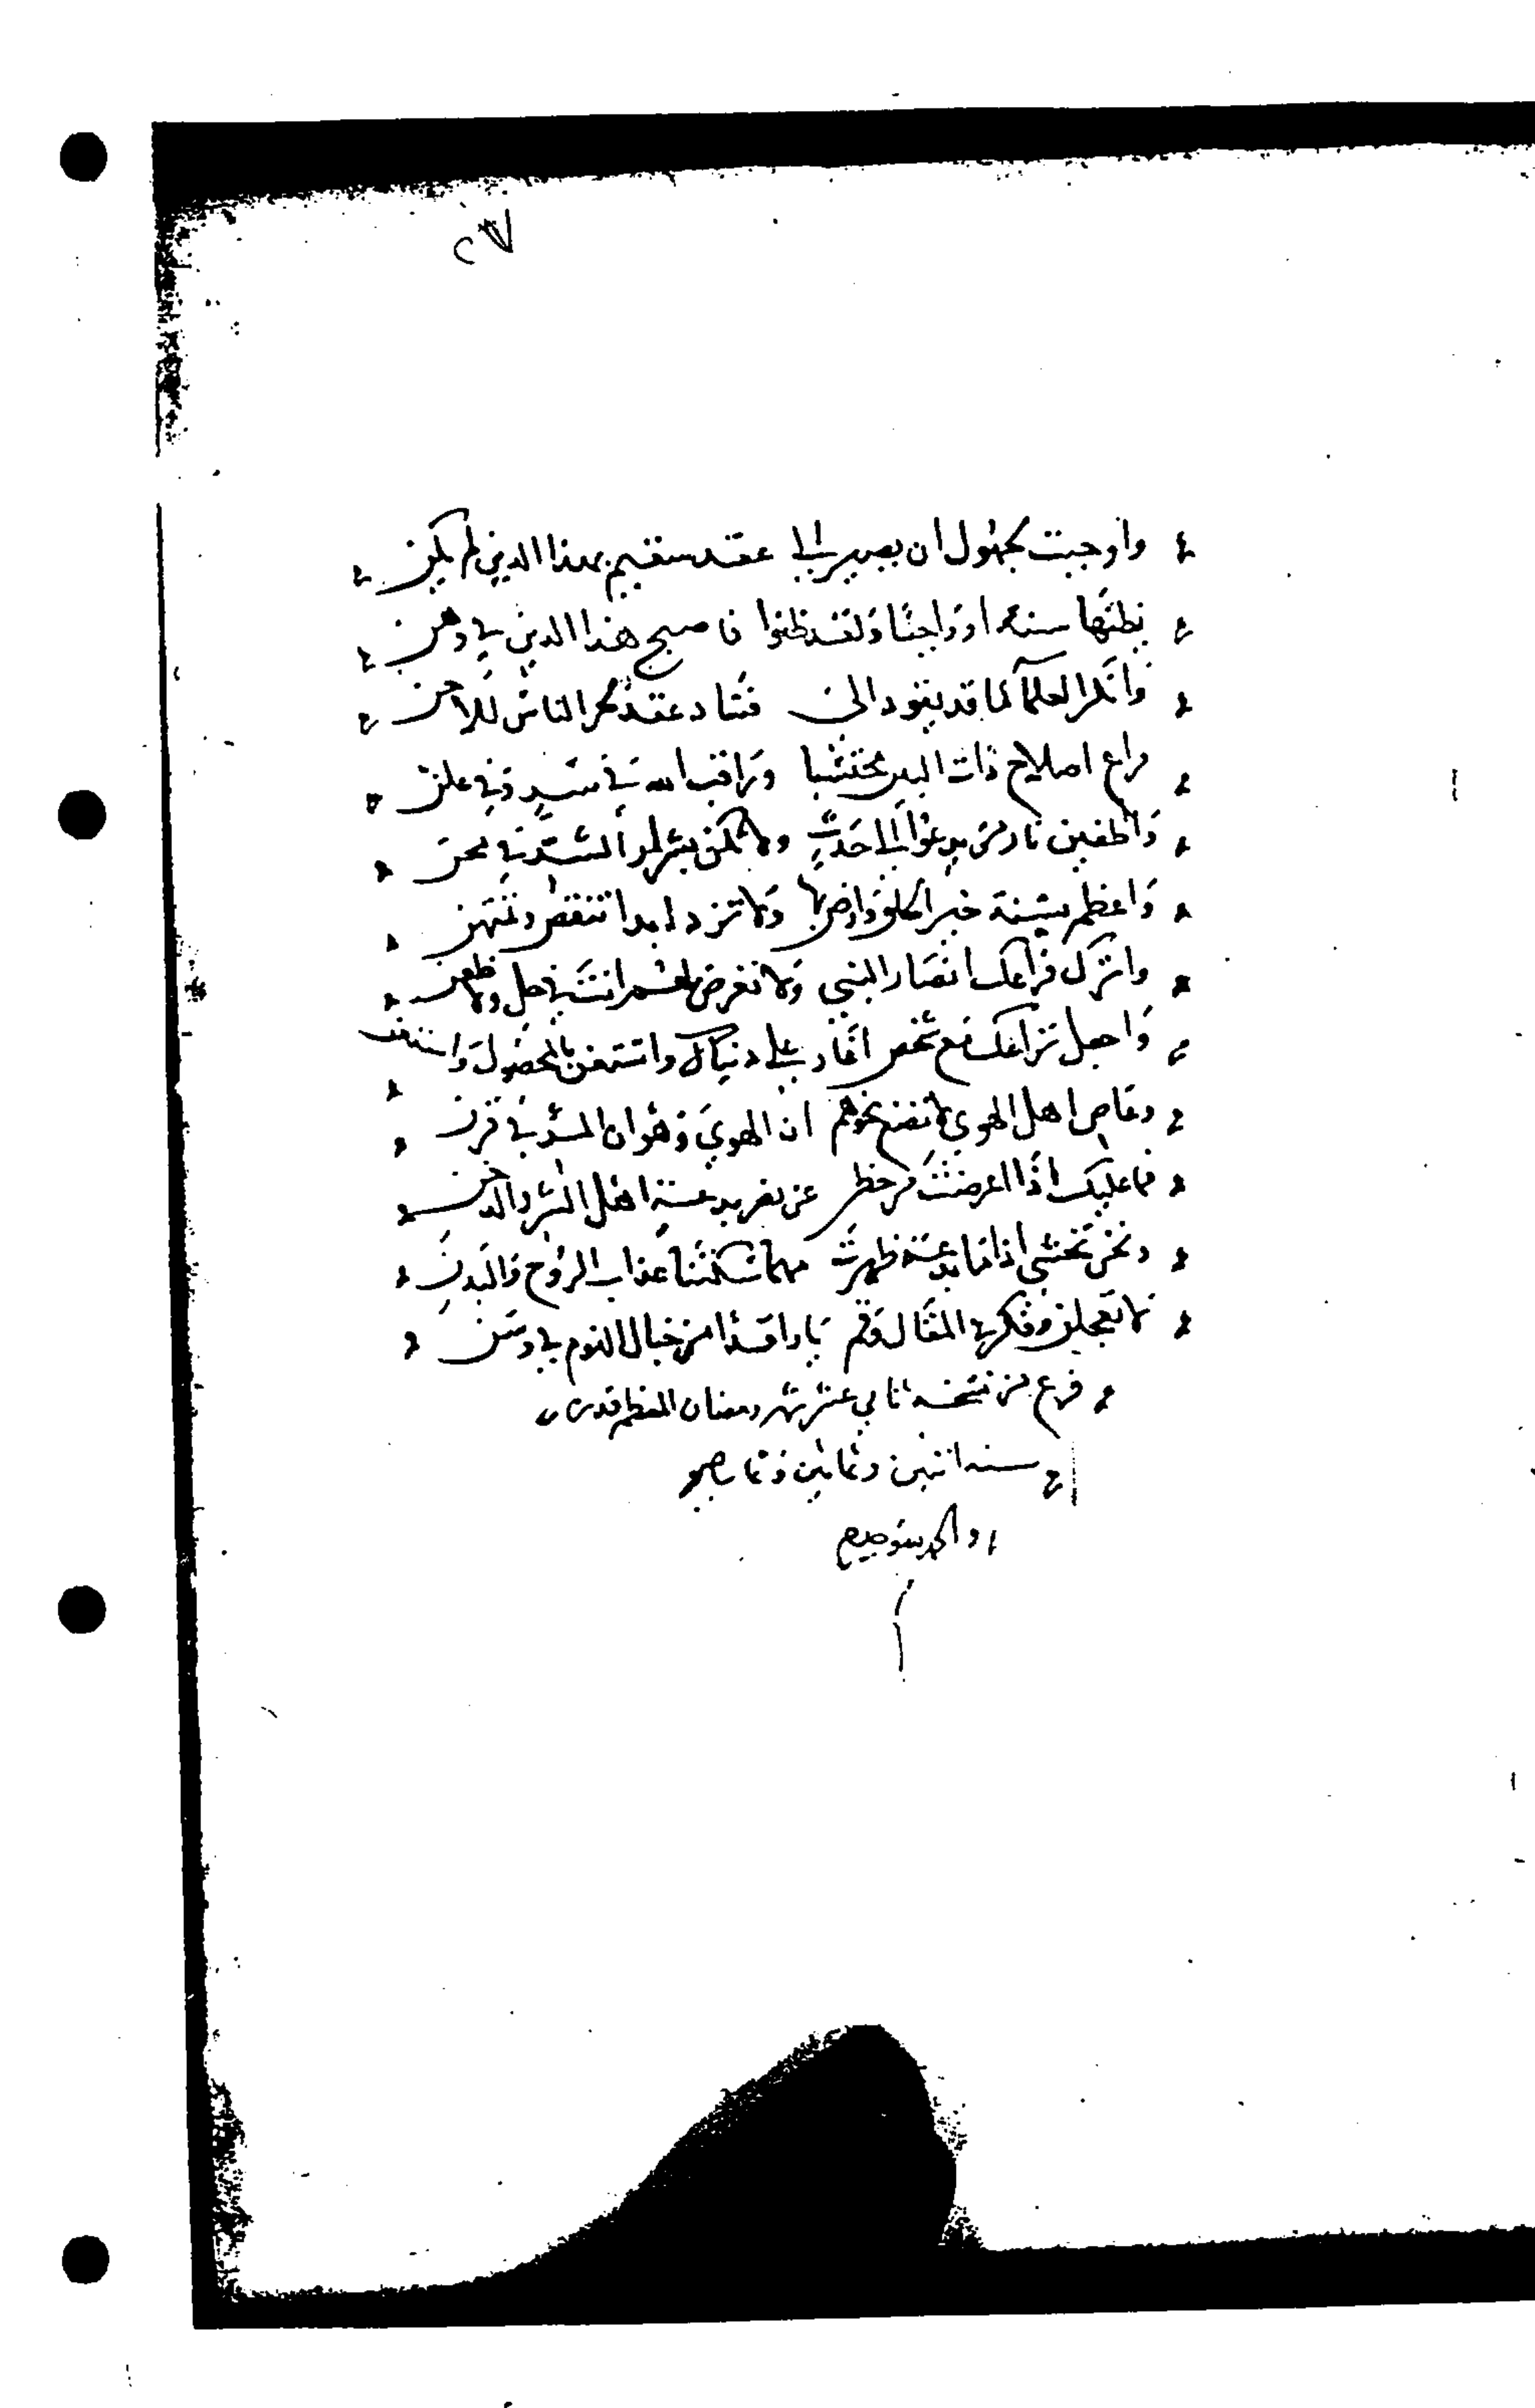 واوجبت لجهول ان يصير الي عقد سقيم بهذا الدين لم يكن
يظنها سنة او واجبًا ولقد ظنوا فاصبح هذا الدين في وهن
وانكر العلما لما قد يقود الى فساد عقد الناس
راع اصلاح ذات البين محتسبا وراقب الله في سر وفي علن
واطفين نار من يدعوا الي حدث ولا تكن بشر المرء في محن
واعظم بسنة خير الخلق وارض بها ولا تزد ابدا تنقص وتمتهن
واترك انصار النبي ولا تعرض لهم انت في حل ولا ظعن
واجعل نزاعك مع شخص اغار على دنياك واستعن
وعاص اهل الهوى لا تصغ نحوهم ان الهوي وهوان المرء في قرن
فما عليك اذا اعرضت من خطر عن بدعة اهل الشر والدخن
ونحن نخشى اذا ما بدعة ظهرت مهما سكتنا عذاب الروح والبدن
لا تعجلن وفكر في المقال وقم يا راقدا من خيال النوم في وسن
فرغ من نسخه ثاني عشر شهر رمضان المعظم قدره
سنه اثنين وثمانين وثمانمايه
والحمد لله وحده